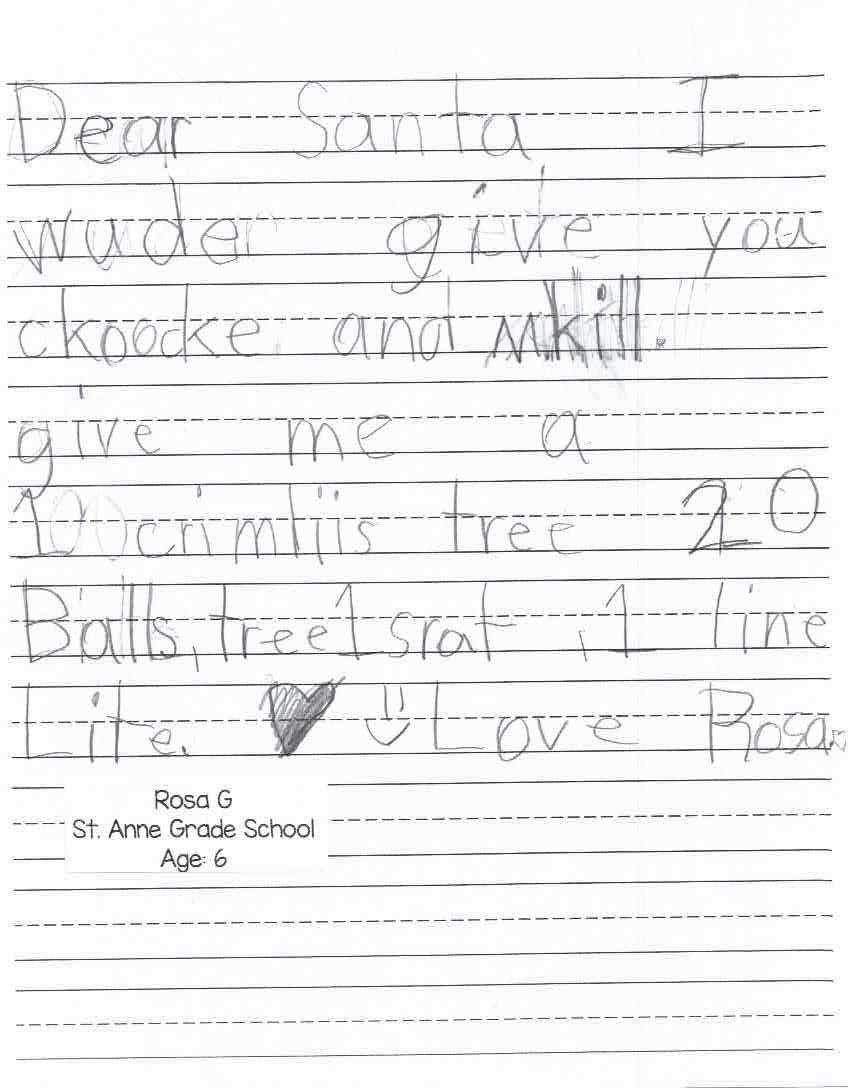 Dear Santa I
wuder give you
ckoocke and mkill.
give me a
1 crimtiis tree 20
Balls, tree 1 srat , 1 line
Lite. Love Rosa
Rosa G
St. Anne Grade School
Age: 6